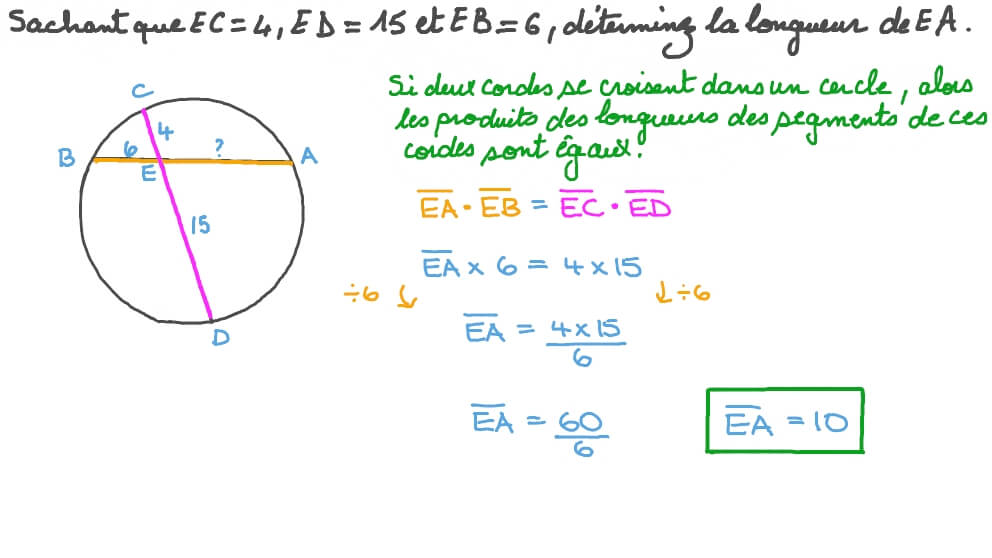 Sachant que EC = 4, ED = 15 et EB = 6, déterminez la longueur de EA.
Si deux cordes se croisent dans un cercle, alors
les produits des longueurs des segments de ces
cordes sont égaux.
C
4
B
6
?
A
E
15
D
EA · EB = EC · ED
EA × 6 = 4 × 15
÷6 ↓ ↓ ÷6
EA = 4 × 15
6
EA = 60
6
EA = 10